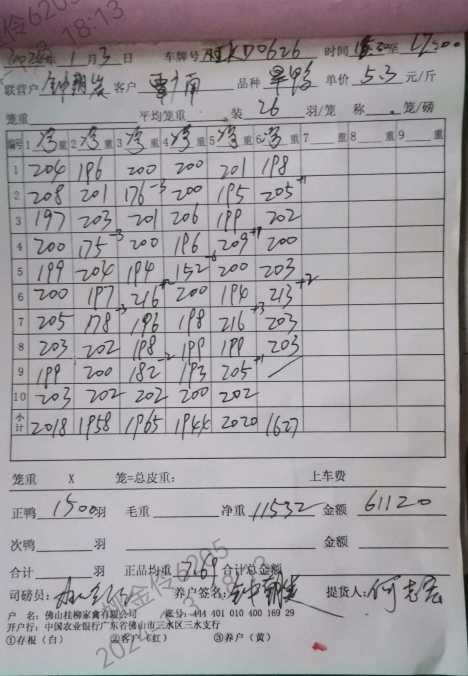 1月3日 车牌号 D0626 时间 至 17:00
联营户 客户 品种 单价 5.3 元/斤
笼重 平均笼重 装 26 羽/笼 称 笼/磅
编号 1 重 2 重 3 重 4 重 5 重 6 重 7 重 8 重 9 重
1 204 196 200 200 201 198
2 208 201 176 -3 200 195 205 +1
3 197 203 201 206 199 202
4 200 175 -3 200 196 209 +1 200
5 199 204 194 152 -6 200 203
6 200 197 216 +2 200 194 213 +2
7 205 178 -3 196 198 216 +3 203
8 203 202 198 199 199 203
9 199 200 182 -2 193 205 +1
10 203 202 202 200 202
小计 2018 1958 1965 1944 2020 1627
笼重 X 笼=总皮重: 上车费
正鸭 1500 羽 毛重 净重 11532 金额 61120
次鸭 羽 金额
合计 羽 正品均重 7.69 合计总金额
司磅员: 养户签名: 提货人:
户 名: 佛山桂柳家禽有限公司 账号: 444 401 010 400 169 29
开户行: 中国农业银行广东省佛山市三水区三水支行
①存根(白) ②客户(红) ③养户(黄)